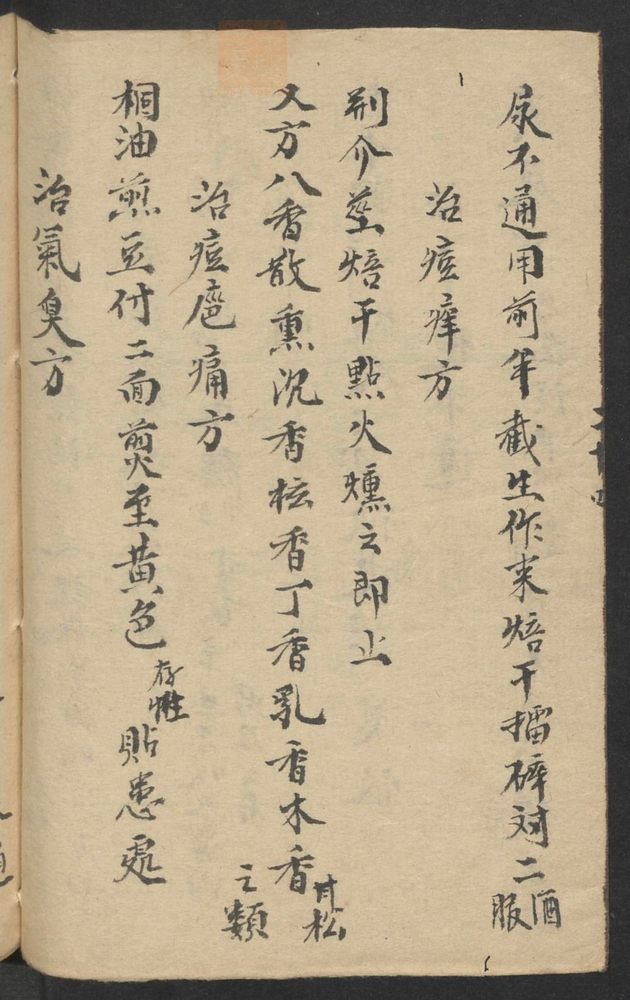 尿不通用前年截生作末焙干擂碎对二酒服
治痘痒方
荆介茎焙干點火燻之即止
又方八香散熏沉香枟香丁香乳香木香甘松之類
治痘疤痛方
桐油煎豆付二面煎至黄色存性貼患處
治氣臭方